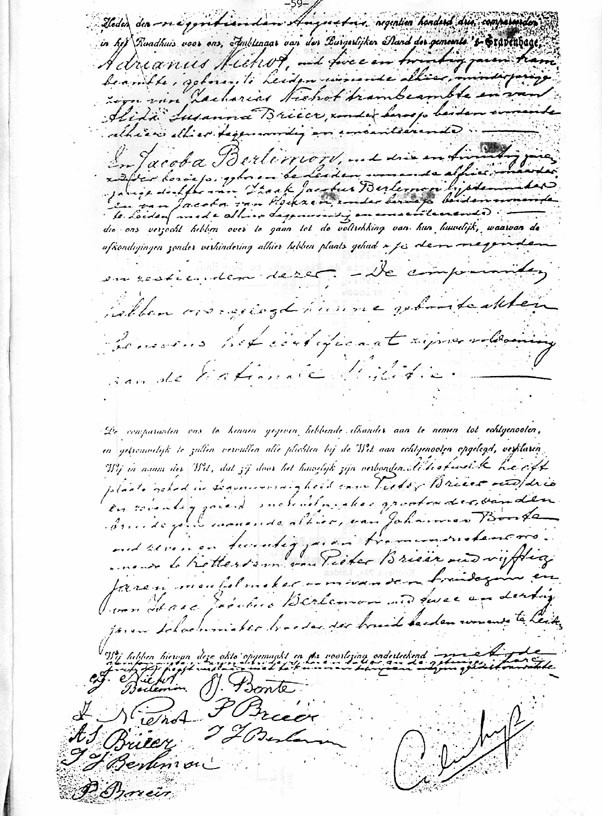 —59—
Heden den negentienden Augustus negentien honderd drie, compareerden
in het Raadhuis voor ons, Ambtenaar van den Burgerlijken Stand der gemeente 's-Gravenhage,
Adrianus Niehot, oud twee en twintig jaren, tram
beambte, geboren te Leiden wonende alhier, minderjarige
zoon van Zacharias Niehot trambeambte en van
Alida Susanna Briëer, zonder beroep beiden wonende
alhier alhier tegenwoordig en consenteerende
En Jacoba Berlemon, oud drie en twintig jaren
zonder beroep, geboren te Leiden wonende alhier, meerder
jarige dochter van Izaak Jacobus Berlemon
en van Jacoba van zonder beroep beiden wonende
te Leiden mede alhier tegenwoordig en consenteerende
die ons verzocht hebben over te gaan tot de voltrekking van hun huwelijk, waarvan de
afkondigingen zonder verhindering alhier hebben plaats gehad op den negenden
en zestienden dezer. – De comparanten
hebben overgelegd hunne geboorteakten
benevens het certificaat zijner voldoening
aan de Nationale Militie.
De comparanten ons te kennen gegeven hebbende elkander aan te nemen tot echtgenooten,
en getrouwelijk te zullen vervullen alle plichten bij de Wet aan echtgenooten opgelegd, verklaren
Wij in naam der Wet, dat zij door het huwelijk zijn verbonden. Hetwelk heeft
plaats gehad in tegenwoordigheid van Pieter Briëer oud drie
en zeventig jaren meubelmaker grootvader van den
bruidegom wonende alhier, van Johannes Bonte
oud zeven en twintig jaren wo
nende te Rotterdam van Pieter Briëer oud vijftig
jaren meubelmaker oom van den bruidegom en
van Izaac Jacobus Berlemon oud twee en dertig
jaren schoenmaker broeder der bruid beiden wonende te Leiden
Wij hebben hiervan deze akte opgemaakt en na voorlezing onderteekend met de
Niehot
Berlemon J. Bonte
Z Niehot P Briëer
A S Briëer I J Berlemon
I J Berlemon
P Briëer